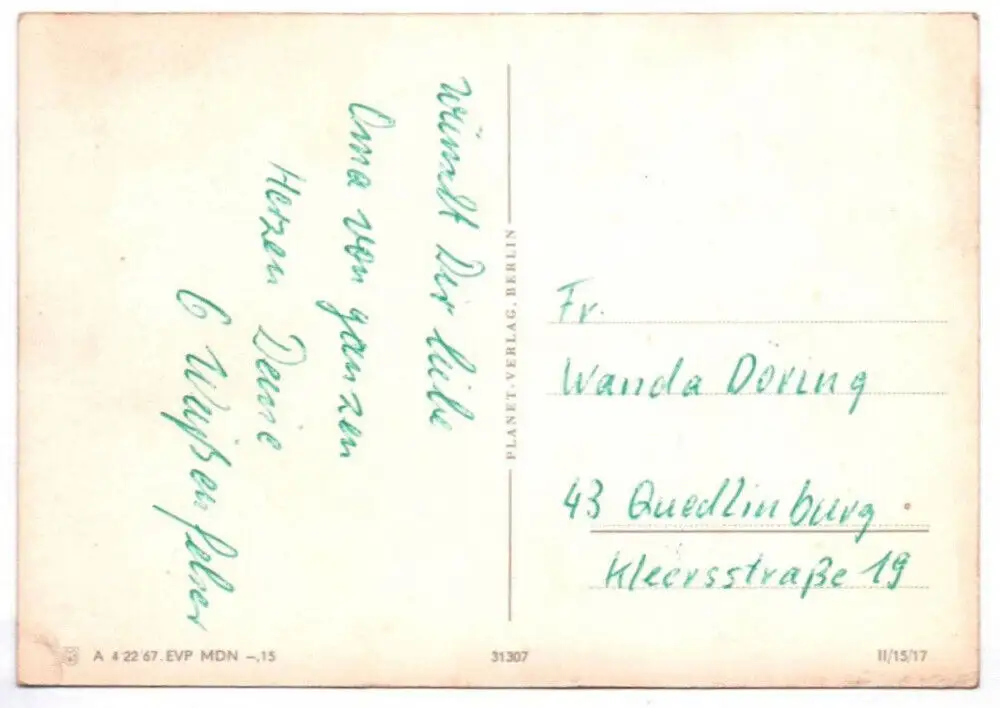 wünscht Dir liebe
Oma von ganzen
Herzen Deine
6 Weißenfelser
PLANET-VERLAG, BERLIN
Fr.
Wanda Döring
43 Quedlinburg
Kleersstraße 19
A 4 22 67. EVP MDN –,15
31307
II/15/17